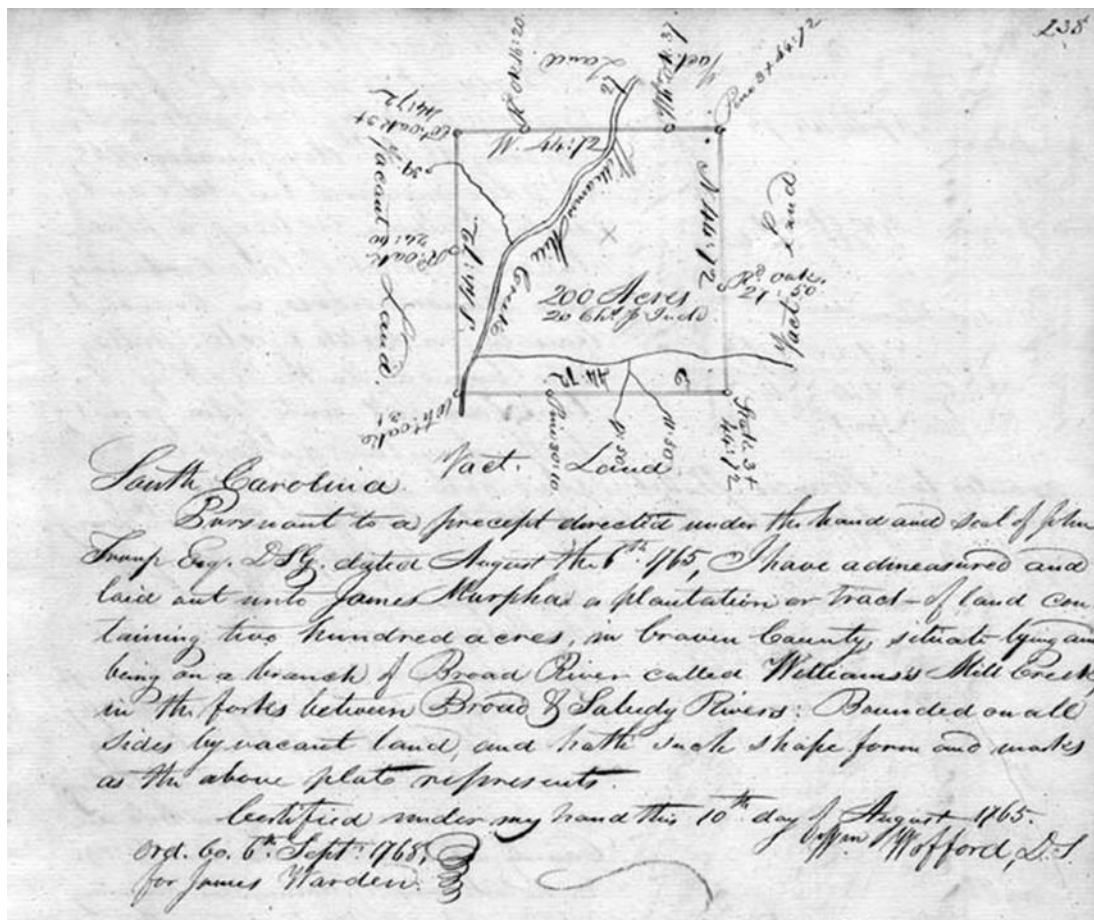 238
R. Oak 16:20
Vact. Land
Wh. Oak 37
Pine 3 X 44:72
Wt. oak 3X
44:72
W. 44:72
27
39.
Vacant Land
R. oak
26:60
S. 44:72
Williams's Mill Creek
N 44:72
200 Acres
20 Chs. p Inch
R. Oak
21:50
Vact Land
Wh: oak
31
E 44:72
Pine 30:10.
Stake 3X
44:72
Vact. Land
South Carolina
Pursuant to a precept directed under the hand and seal of John
Troup Esq. D.S.G. dated August the 6th. 1765, I have admeasured and
laid out unto James Murpha a plantation or tract of land con-
taining two hundred acres, in Craven County, situate lying and
being on a branch of Broad River called Williams's Mill Creek,
in the forks between Broad & Saludy Rivers: Bounded on all
sides by vacant land, and hath such shape form and marks
as the above plat represents.
Certified under my hand this 10th day of August 1765.
Wm Wofford, D.S.
Ord. Co. 6th. Septr. 1768,
for James Warden.